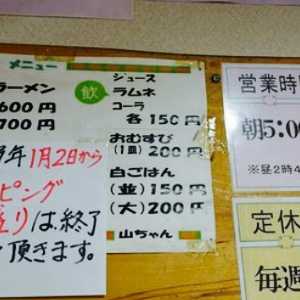 メニュー
ラーメン
600円
700円
飲
ジュース
ラムネ
コーラ
各150円
おむすび
(1皿)200円
白ごはん
(並)150円
(大)200円
山ちゃん
年1月2日から
ピング
りは、終了
頂きます。
営業時間
朝5:00
※昼2時
定休
毎週